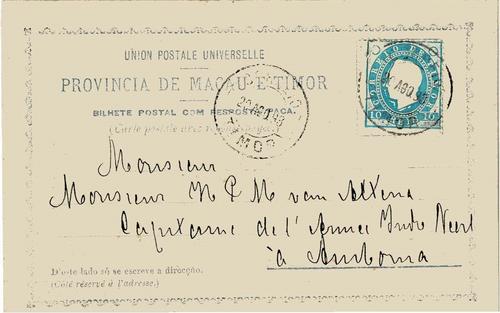 UNION POSTALE UNIVERSELLE
PROVINCIA DE MACAU E TIMOR
BILHETE POSTAL COM RESPOSTA PAGA.
(Carte postale avec réponse payée.)
CORREIO
10 10
20 AGO. 93
Monsieur
Monsieur M P M van Altena
Capitaine de l'Armée Indo Neerl
à Amboina
D'este lado só se escreve a direcção.
(Côté réservé à l'adresse.)